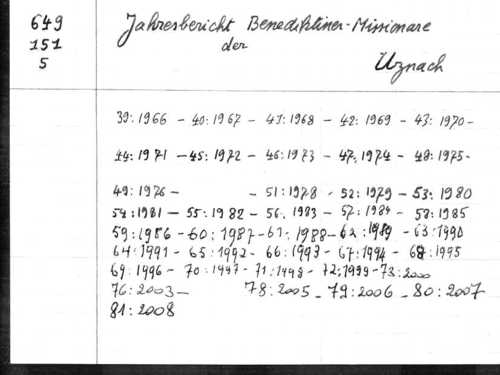 649
151
5
Jahresbericht Benediktiner-Missionare
der
Uznach
39:1966 - 40:1967 - 41:1968 - 42:1969 - 43:1970 -
44:1971 - 45:1972 - 46:1973 - 47:1974 - 48:1975 -
49:1976 - - 51:1978 - 52:1979 - 53:1980
54:1981 - 55:1982 - 56:1983 - 57:1984 - 58:1985
59:1986 - 60:1987 - 61:1988 - 62:1989 - 63:1990
64:1991 - 65:1992 - 66:1993 - 67:1994 - 68:1995
69:1996 - 70:1997 - 71:1998 - 72:1999 - 73:2000
76:2003 - 78:2005 - 79:2006 - 80:2007
81:2008